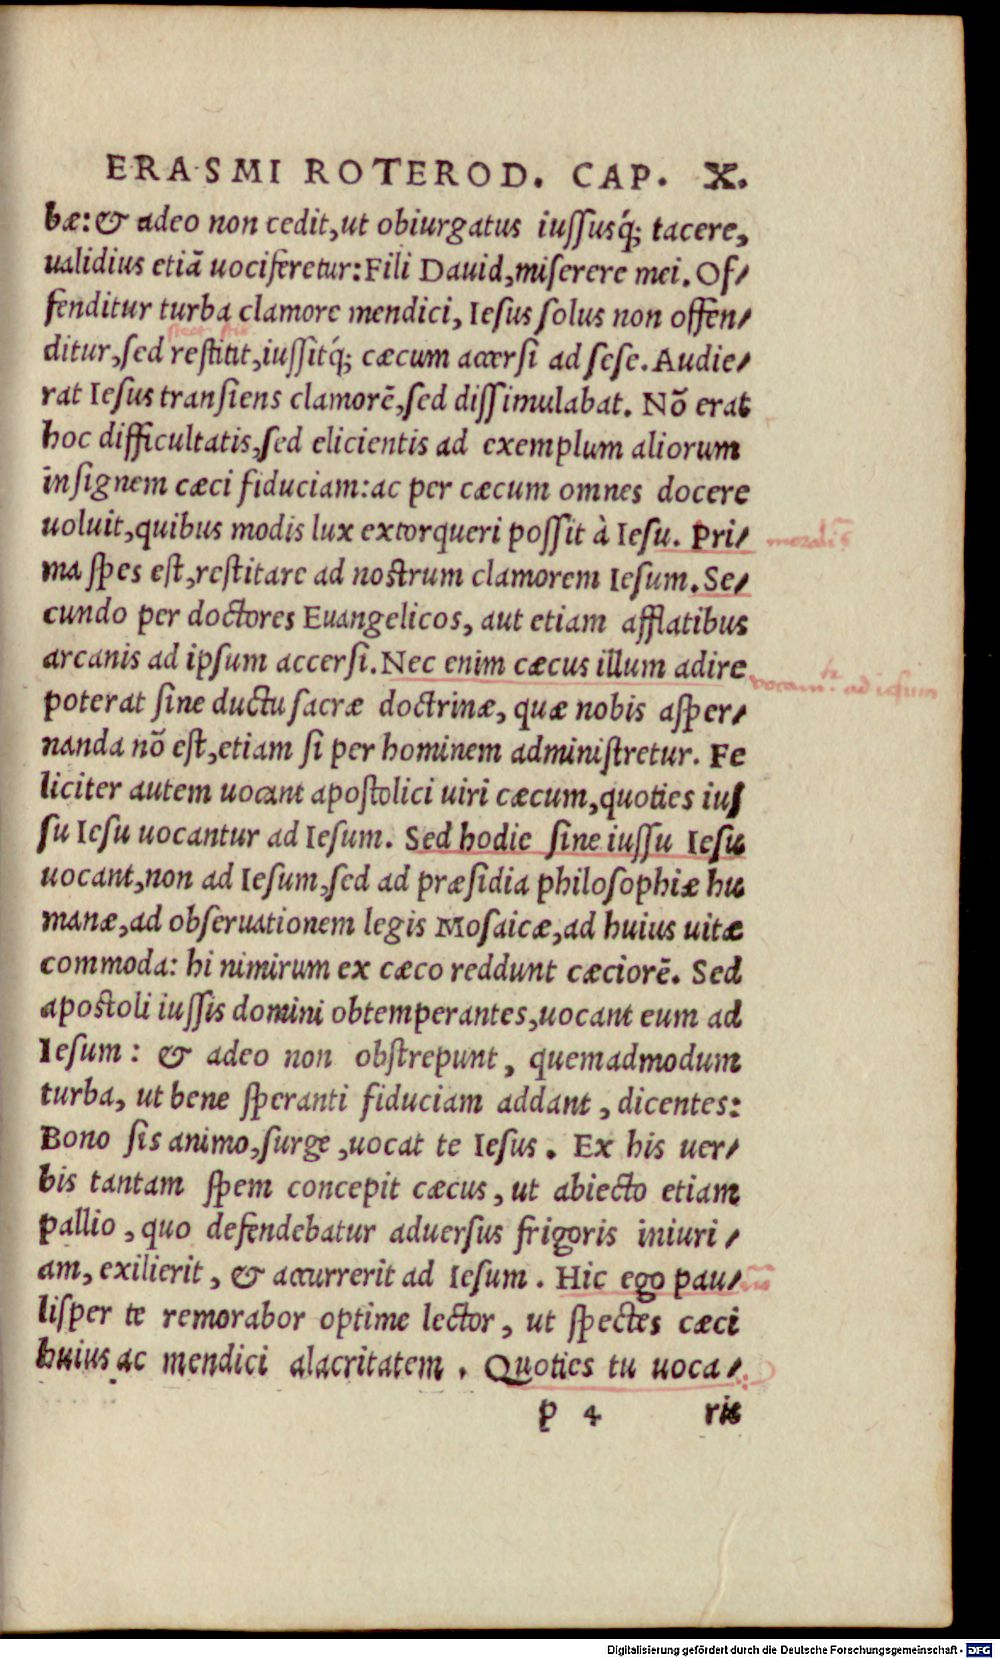 ERASMI ROTEROD. CAP. X.
bæ: & adeo non cedit, ut obiurgatus iussusq́; tacere,
ualidius etiā uociferetur: Fili Dauid, miserere mei. Of/
fenditur turba clamore mendici, Iesus solus non offen/
ditur, sed restitit, iussitq́; cæcum accersi ad sese. Audie/
rat Iesus transiens clamorē, sed dissimulabat. Nō erat
hoc difficultatis, sed elicientis ad exemplum aliorum
insignem cæci fiduciam: ac per cæcum omnes docere
uoluit, quibus modis lux extorqueri possit à Iesu. Pri/
ma spes est, restitare ad nostrum clamorem Iesum. Se/
cundo per doctores Euangelicos, aut etiam afflatibus
arcanis ad ipsum accersi. Nec enim cæcus illum adire
poterat sine ductu sacræ doctrinæ, quæ nobis asper/
nanda nō est, etiam si per hominem administretur. Fe
liciter autem uocant apostolici uiri cæcum, quoties ius
su Iesu uocantur ad Iesum. Sed hodie sine iussu Iesu
uocant, non ad Iesum, sed ad præsidia philosophiæ hu
manæ, ad obseruationem legis Mosaicæ, ad huius uitæ
commoda: hi nimirum ex cæco reddunt cæciorē. Sed
apostoli iussis domini obtemperantes, uocant eum ad
Iesum: & adeo non obstrepunt, quemadmodum
turba, ut bene speranti fiduciam addant, dicentes:
Bono sis animo, surge, uocat te Iesus. Ex his uer/
bis tantam spem concepit cæcus, ut abiecto etiam
pallio, quo defendebatur aduersus frigoris iniuri/
am, exilierit, & accurrerit ad Iesum. Hic ego pau/
lisper te remorabor optime lector, ut spectes cæci
huius ac mendici alacritatem. Quoties tu uoca/
p 4 ris
ad iesum
Digitalisierung gefördert durch die Deutsche Forschungsgemeinschaft - DFG